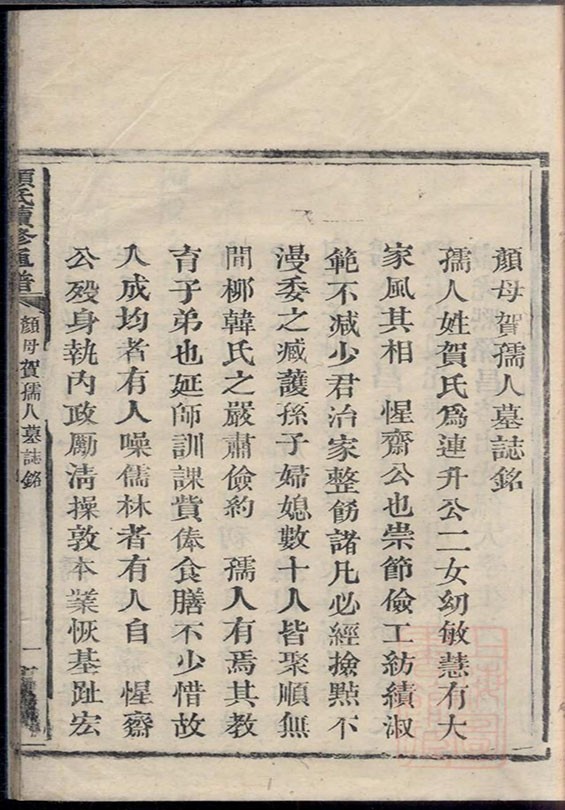 顏母賀孺人墓誌銘
孺人姓賀氏爲連升公二女幼敏慧有大
家風其相　惺齋公也崇節儉工紡績淑
範不減少君治家整飭諸凡必經撿㸃不
漫委之臧護孫子婦媳數十人皆聚順無
間柳韓氏之嚴肅儉約　孺人有焉其教
育子弟也延師訓課貲俸食膳不少惜故
入成均者有人噪儒林者有人自　惺齋
公歿身執內政勵淸操敦本業恢基趾宏
顏氏續修
譜
顏母賀孺人墓誌銘
一